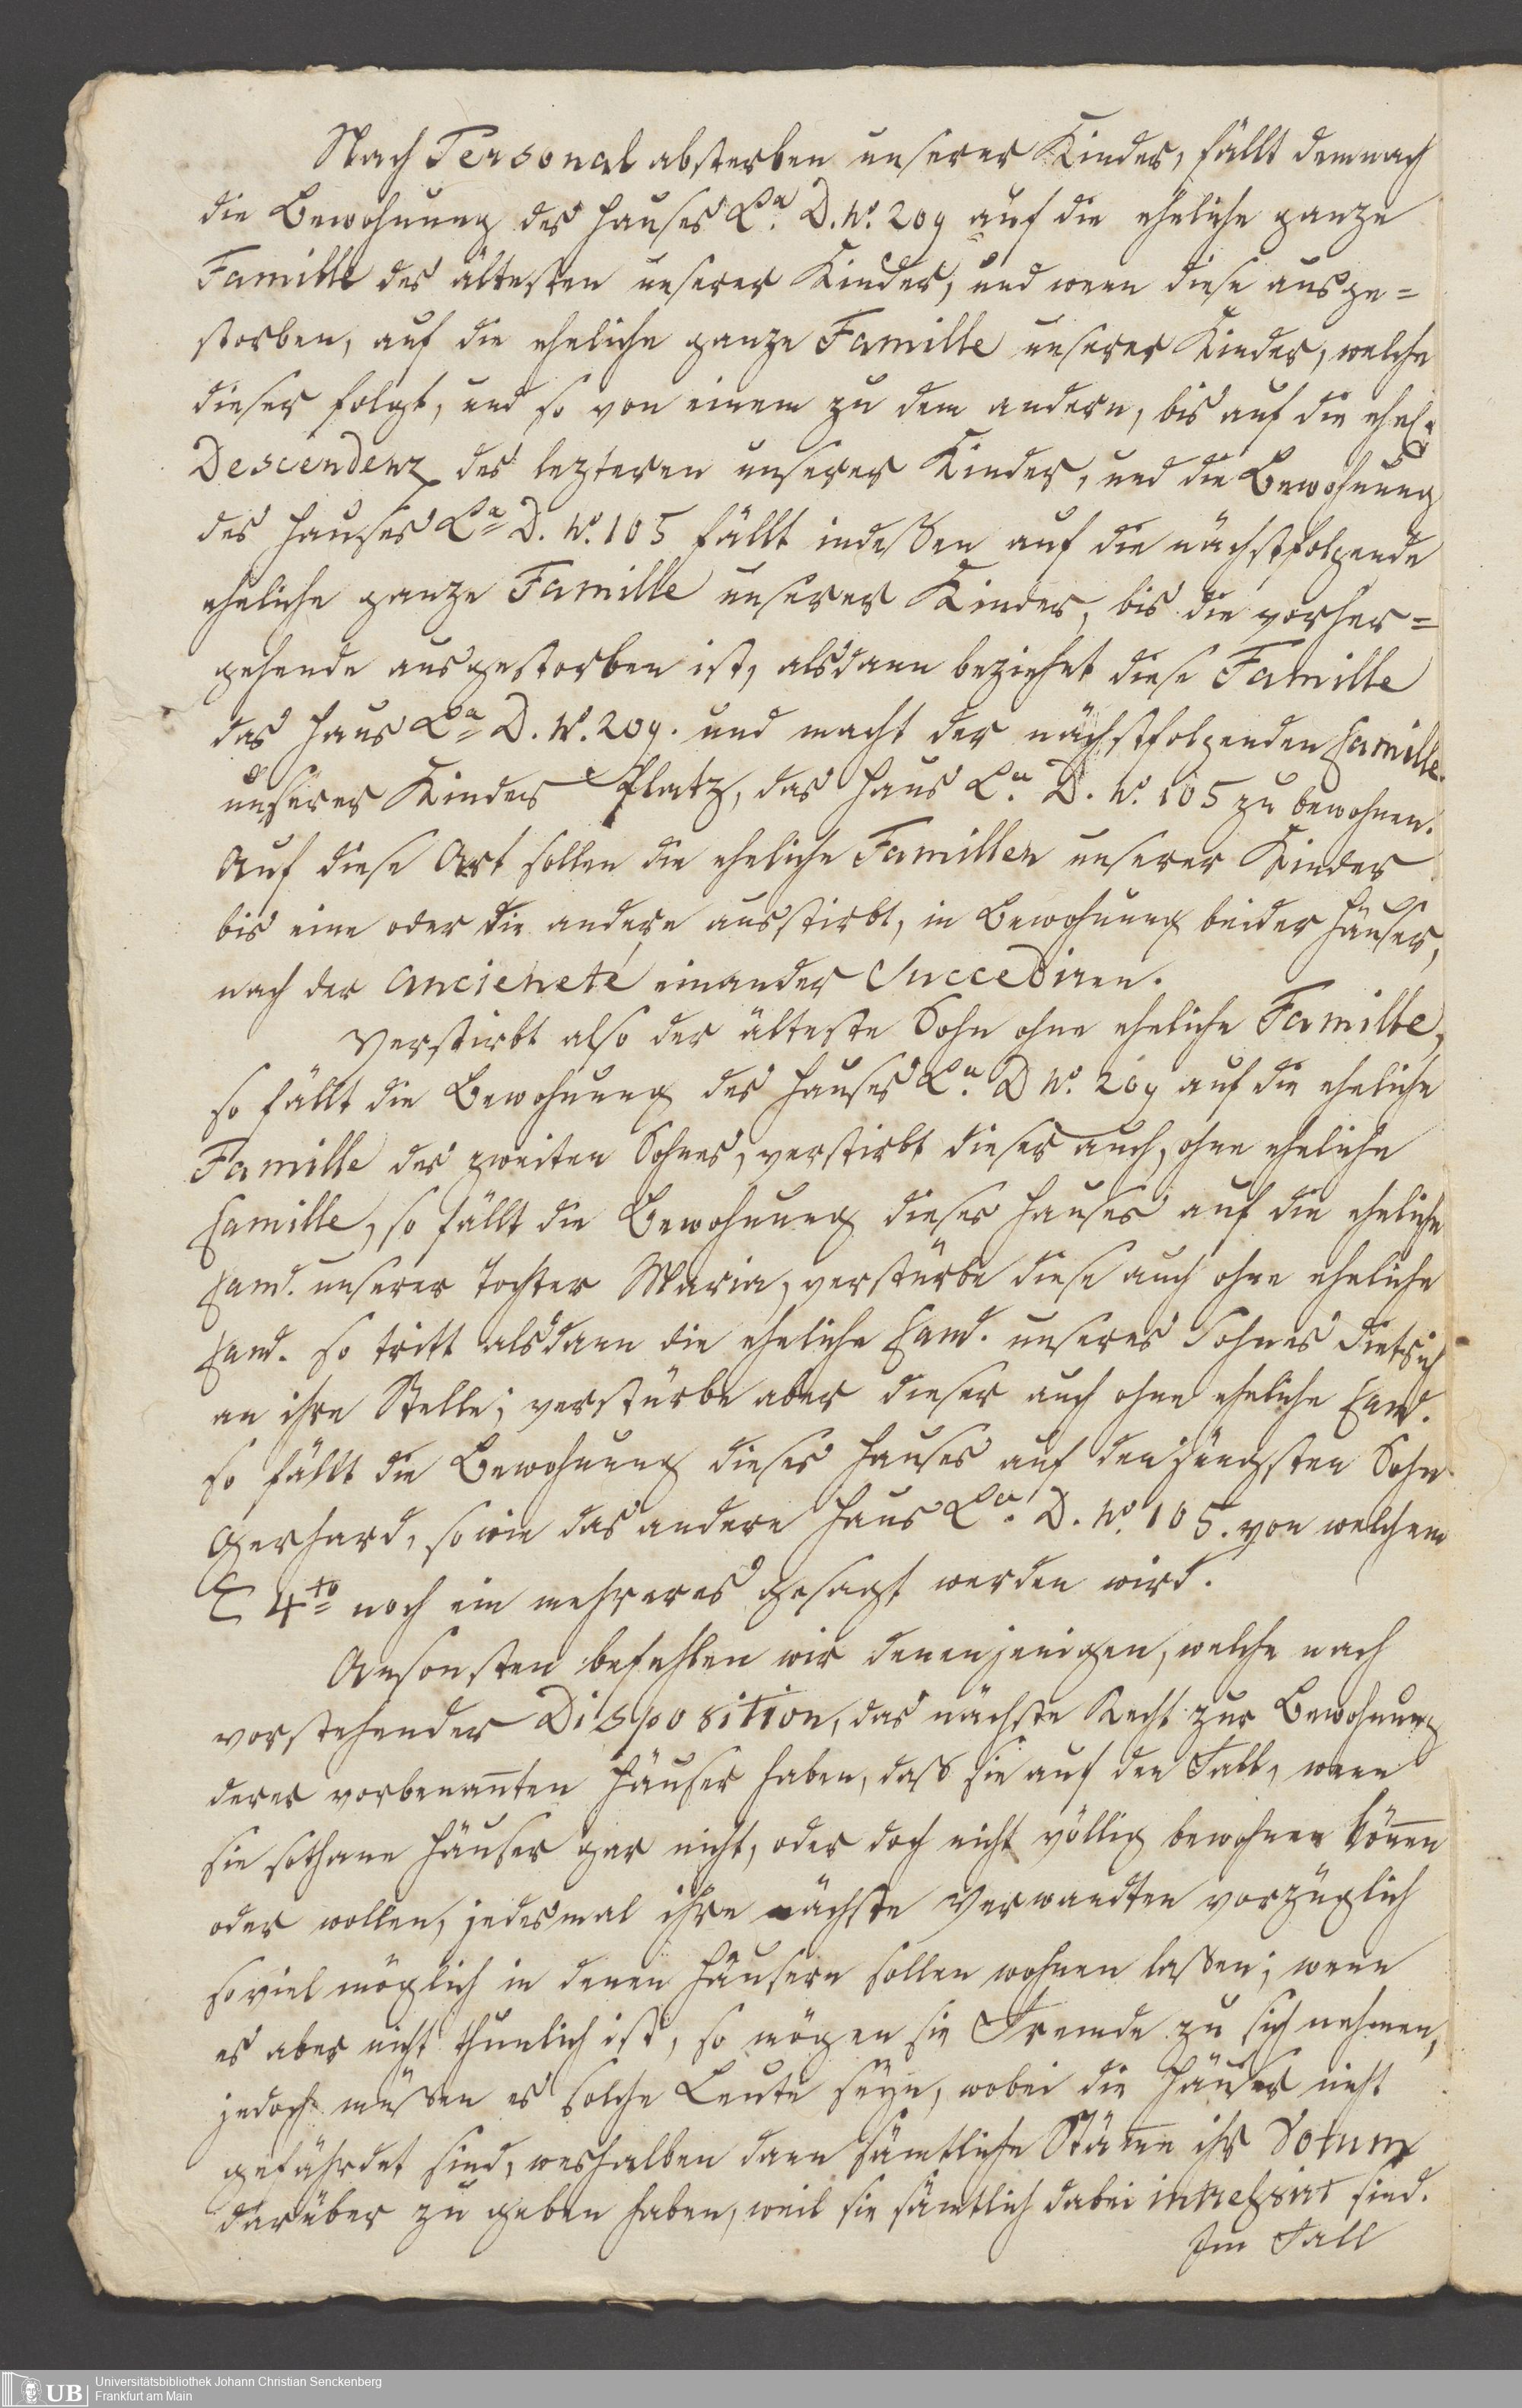 Nach Personal absterben unserer Kinder, fällt demnach
die Bewohnung des Hauses La. D. No. 209 auf die eheliche ganze
Famille des ältesten unserer Kinder, und wenn diese ausge=
storben, auf die eheliche ganze Famille unserer Kinder, welche
dieser folgt, und so von einem zu dem andern, bis auf die ehel.
Descendenz des lezteren unserer Kinder, und die Bewohnung
des Hauses La. D. No. 105 fällt indeßen auf die nächstfolgende
eheliche ganze Famille unserer Kinder, bis die vorher=
gehende ausgestorben ist, alsdann beziehet diese Famille
das Haus La. D. No. 209. und macht der nächstfolgenden Famille
unserer Kinder Platz, das Haus La. D. No. 105 zu bewohnen.
Auf diese Art sollen die eheliche Famillen unserer Kinder
bis eine oder die andere ausstirbt, in Bewohnung beider Häuser,
nach der Ancieneté einander Succediren.
Verstirbt also der älteste Sohn ohne eheliche Famille,
so fällt die Bewohnung des Hauses La. D No. 209 auf die eheliche
Famille des zweiten Sohnes, verstirbt dieser auch, ohne eheliche
Famille, so fällt die Bewohnung dieses Hauses auf die eheliche
Fam. unserer Tochter Maria, verstürbe diese auch ohne eheliche
Fam. so tritt alsdann die eheliche Fam. unseres Sohnes Dietrich
an ihre Stelle; verstürbe aber dieser auch ohne eheliche Fam.
so fällt die Bewohnung dieses Hauses auf den jüngsten Sohn
Gerhard, sowie das andere Haus La. D. No. 105. von welchem
4to noch ein mehreres gesagt werden wird.
Ansonsten befehlen wir denenjenigen, welche nach
vorstehender Disposition, das nächste Recht zur Bewohnung
derer vorbenañten Häuser haben, daß sie auf den Fall, wenn
sie sothane Häuser gar nicht, oder doch nicht völlig bewohnen köñen
oder wollen, jedesmal ihre nächste Verwandten vorzüglich
soviel möglich in denen Häusern sollen wohnen laßen; wenn
es aber nicht thunlich ist, so mögen sie Fremde zu sich nehmen,
jedoch müßen es solche Leute seyn, wobei die Häuser nicht
gefährdet sind, weshalben dann sämtliche Stäm̃e ihr Votum
darüber zu geben haben, weil sie sämtlich dabei intreßirt sind.
Im Fall
UB
Universitätsbibliothek Johann Christian Senckenberg
Frankfurt am Main